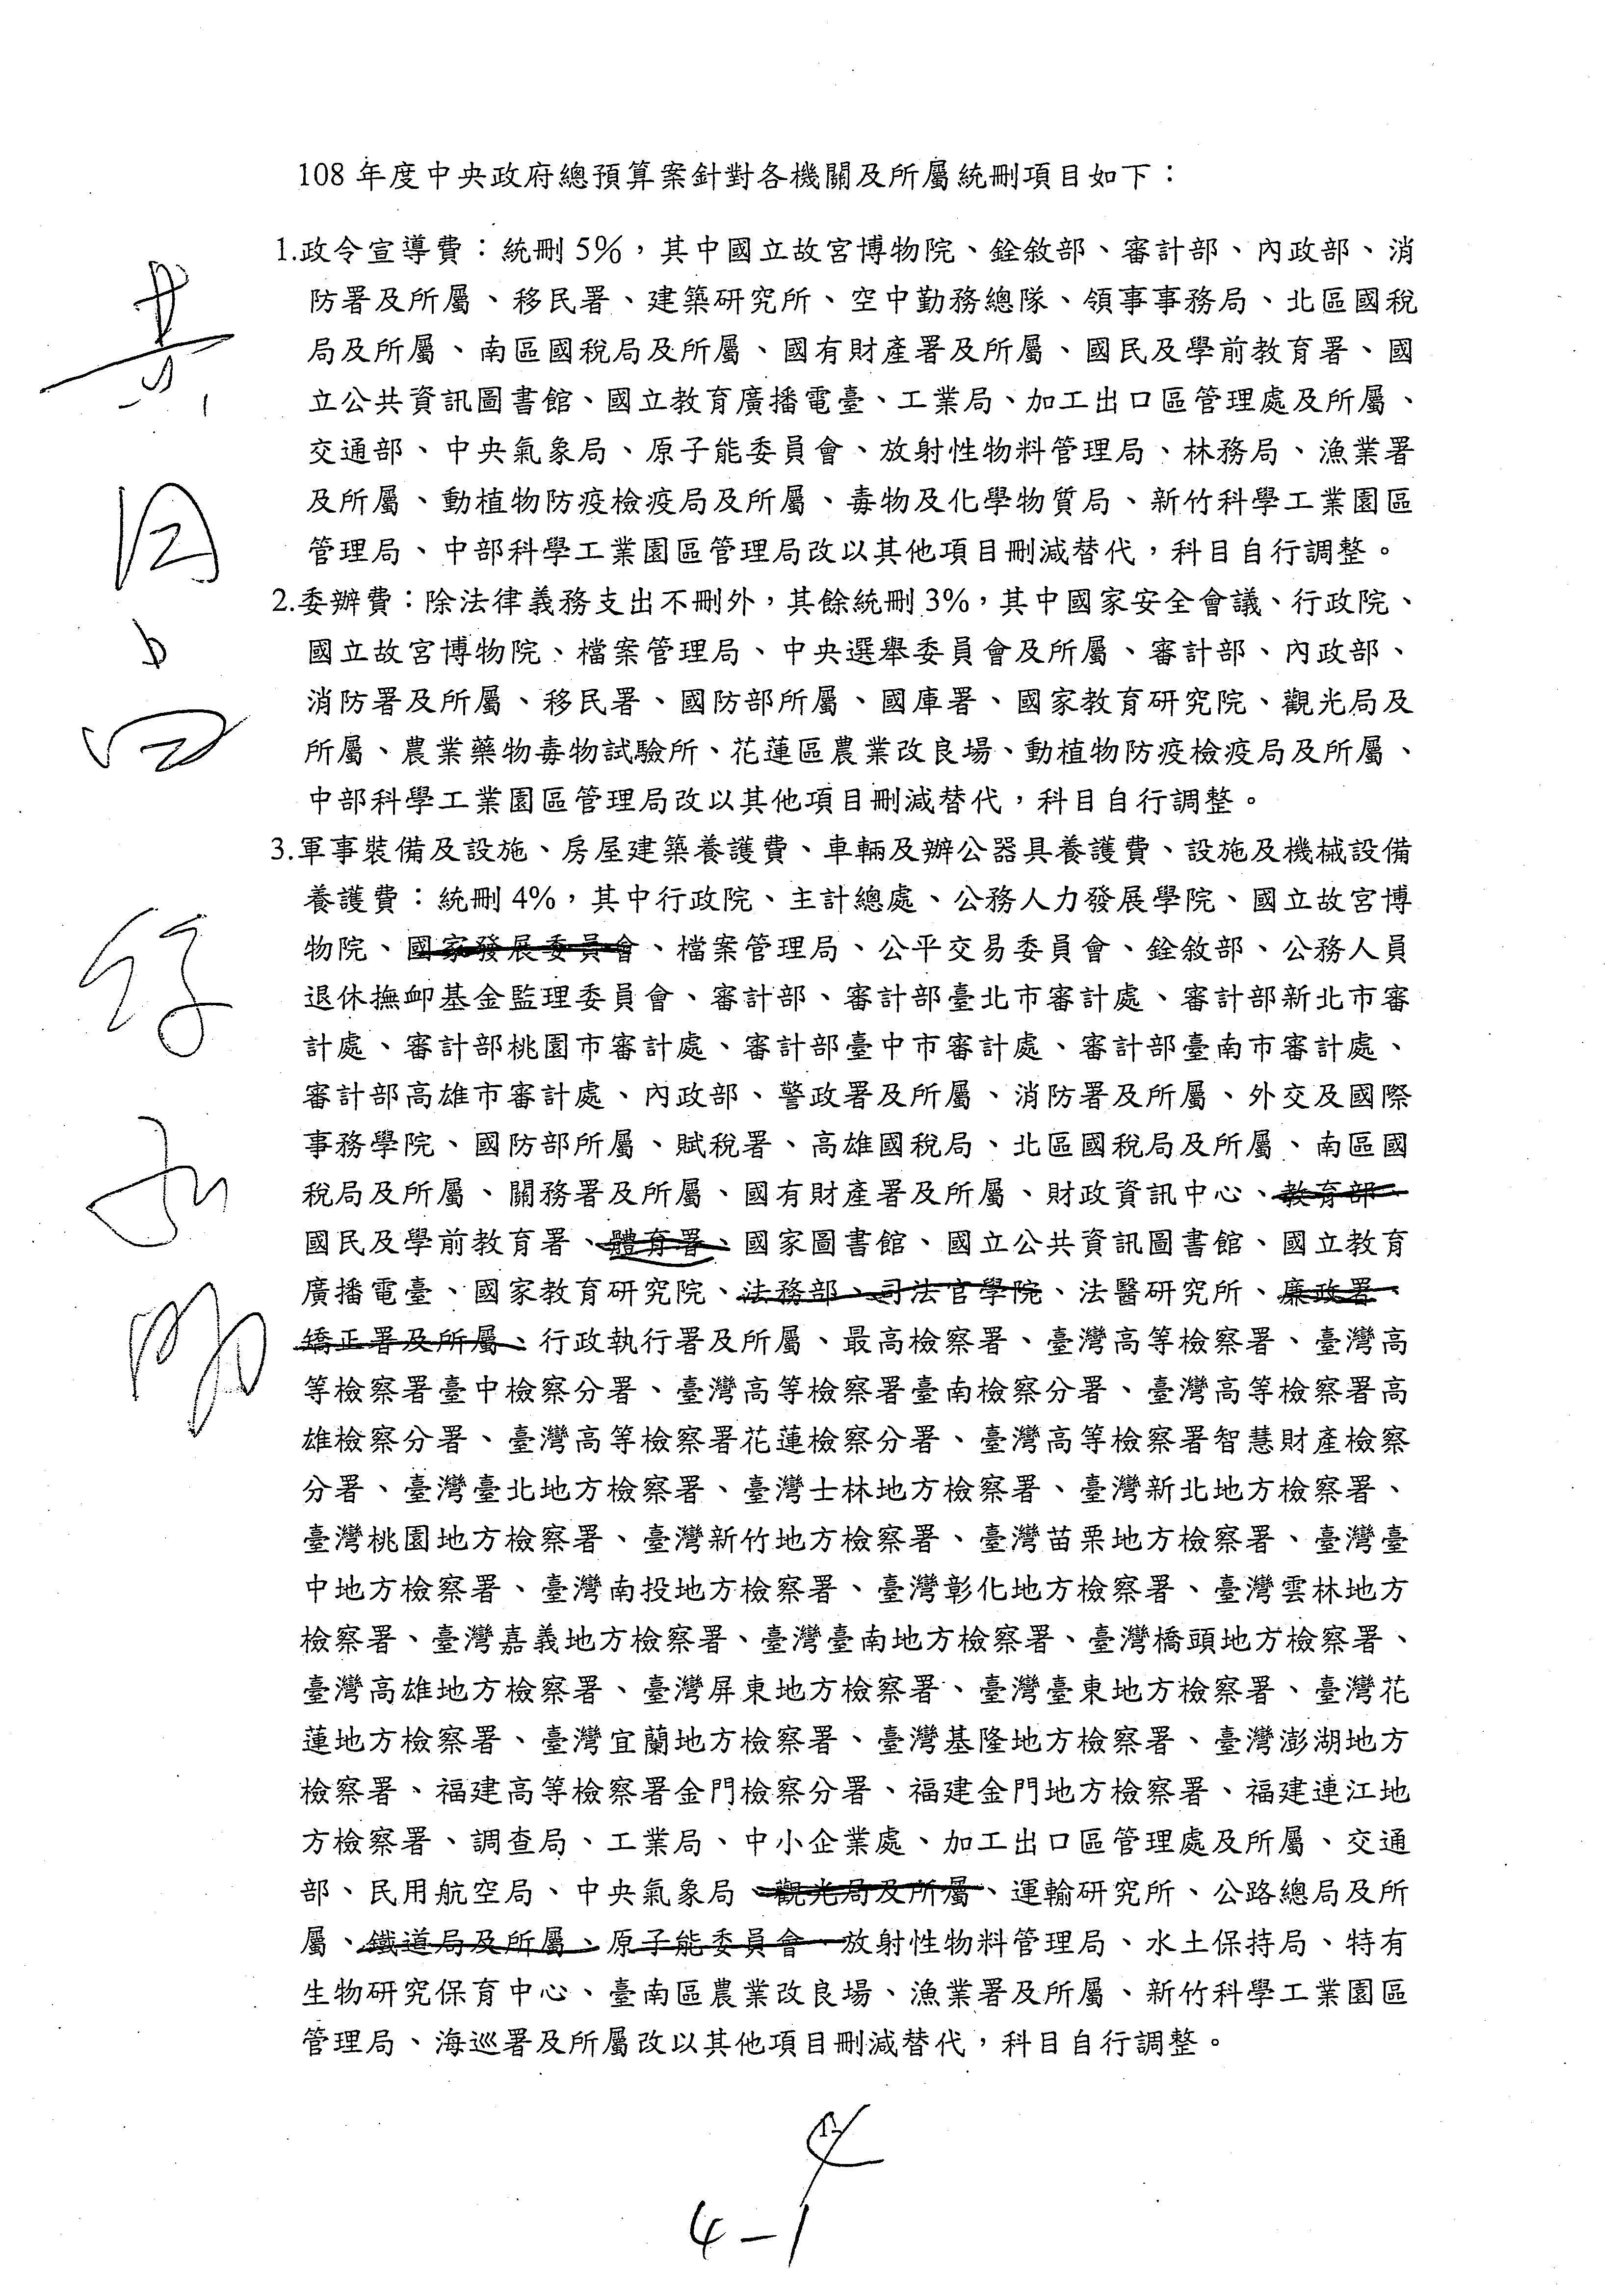 108 年度中央政府總預算案針對各機關及所屬統刪項目如下：
1.政令宣導費：統刪 5%，其中國立故宮博物院、銓敘部、審計部、內政部、消
防署及所屬、移民署、建築研究所、空中勤務總隊、領事事務局、北區國稅
局及所屬、南區國稅局及所屬、國有財產署及所屬、國民及學前教育署、國
立公共資訊圖書館、國立教育廣播電臺、工業局、加工出口區管理處及所屬、
交通部、中央氣象局、原子能委員會、放射性物料管理局、林務局、漁業署
及所屬、動植物防疫檢疫局及所屬、毒物及化學物質局、新竹科學工業園區
管理局、中部科學工業園區管理局改以其他項目刪減替代，科目自行調整。
2.委辦費：除法律義務支出不刪外，其餘統刪 3%，其中國家安全會議、行政院、
國立故宮博物院、檔案管理局、中央選舉委員會及所屬、審計部、內政部、
消防署及所屬、移民署、國防部所屬、國庫署、國家教育研究院、觀光局及
所屬、農業藥物毒物試驗所、花蓮區農業改良場、動植物防疫檢疫局及所屬、
中部科學工業園區管理局改以其他項目刪減替代，科目自行調整。
3.軍事裝備及設施、房屋建築養護費、車輛及辦公器具養護費、設施及機械設備
養護費：統刪 4%，其中行政院、主計總處、公務人力發展學院、國立故宮博
物院、國家發展委員會、檔案管理局、公平交易委員會、銓敘部、公務人員
退休撫卹基金監理委員會、審計部、審計部臺北市審計處、審計部新北市審
計處、審計部桃園市審計處、審計部臺中市審計處、審計部臺南市審計處、
審計部高雄市審計處、內政部、警政署及所屬、消防署及所屬、外交及國際
事務學院、國防部所屬、賦稅署、高雄國稅局、北區國稅局及所屬、南區國
稅局及所屬、關務署及所屬、國有財產署及所屬、財政資訊中心、教育部、
國民及學前教育署、體育署、國家圖書館、國立公共資訊圖書館、國立教育
廣播電臺、國家教育研究院、法務部、司法官學院、法醫研究所、廉政署、
矯正署及所屬、行政執行署及所屬、最高檢察署、臺灣高等檢察署、臺灣高
等檢察署臺中檢察分署、臺灣高等檢察署臺南檢察分署、臺灣高等檢察署高
雄檢察分署、臺灣高等檢察署花蓮檢察分署、臺灣高等檢察署智慧財產檢察
分署、臺灣臺北地方檢察署、臺灣士林地方檢察署、臺灣新北地方檢察署、
臺灣桃園地方檢察署、臺灣新竹地方檢察署、臺灣苗栗地方檢察署、臺灣臺
中地方檢察署、臺灣南投地方檢察署、臺灣彰化地方檢察署、臺灣雲林地方
檢察署、臺灣嘉義地方檢察署、臺灣臺南地方檢察署、臺灣橋頭地方檢察署、
臺灣高雄地方檢察署、臺灣屏東地方檢察署、臺灣臺東地方檢察署、臺灣花
蓮地方檢察署、臺灣宜蘭地方檢察署、臺灣基隆地方檢察署、臺灣澎湖地方
檢察署、福建高等檢察署金門檢察分署、福建金門地方檢察署、福建連江地
方檢察署、調查局、工業局、中小企業處、加工出口區管理處及所屬、交通
部、民用航空局、中央氣象局、觀光局及所屬、運輸研究所、公路總局及所
屬、鐵道局及所屬、原子能委員會、放射性物料管理局、水土保持局、特有
生物研究保育中心、臺南區農業改良場、漁業署及所屬、新竹科學工業園區
管理局、海巡署及所屬改以其他項目刪減替代，科目自行調整。
4-1